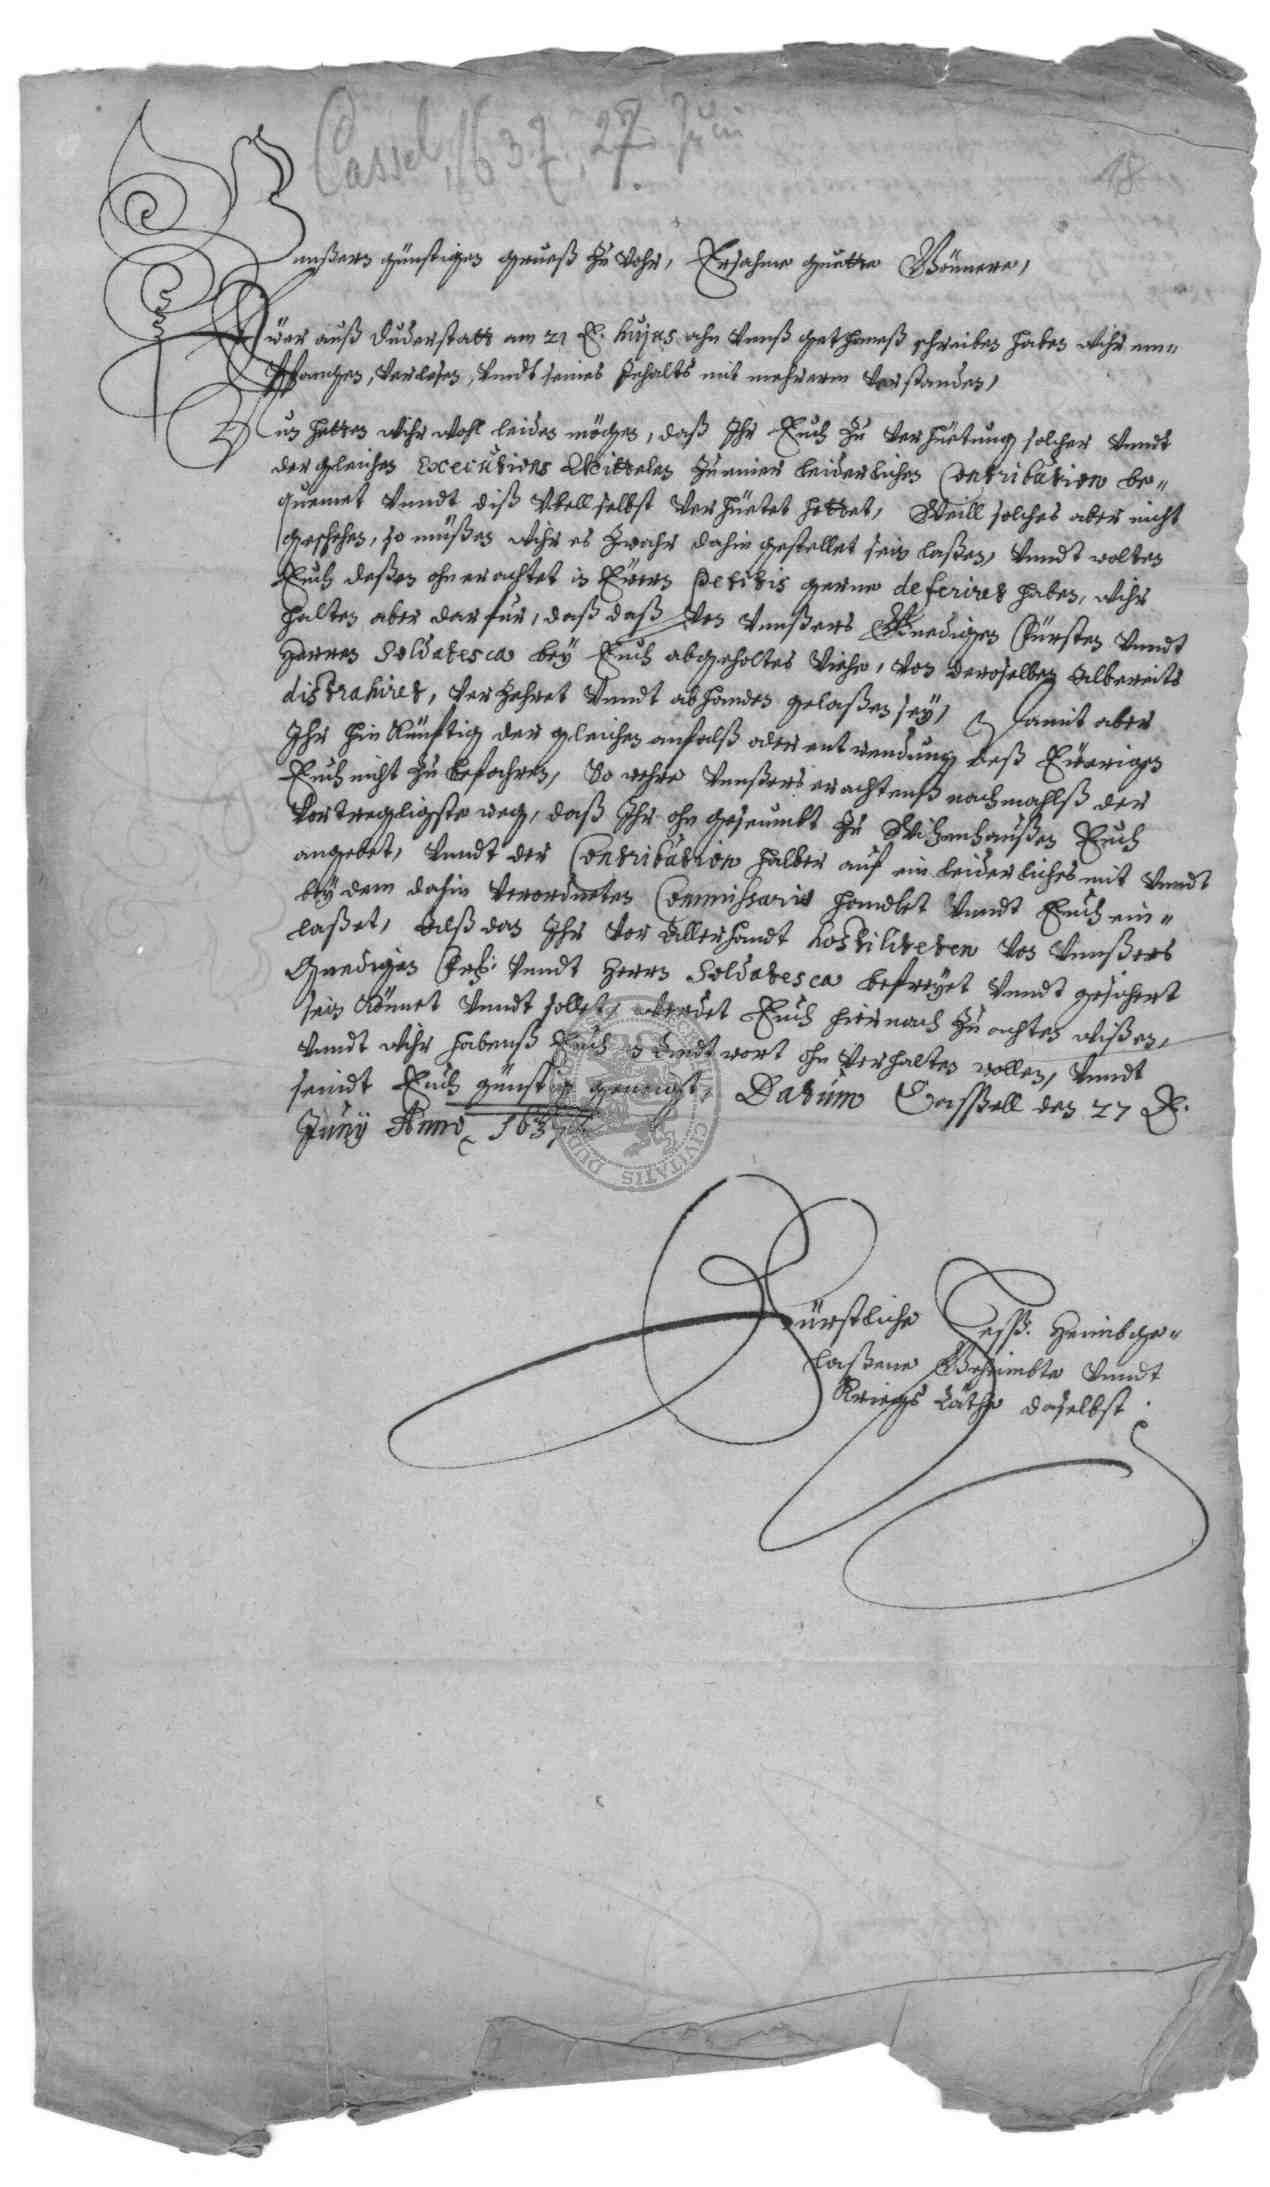 Cassel, 1637, 27. Juni
18
Vnßern günstigen grueß zu vohr, Ersahme guette Gönnere,
Ewer auß Duderstatt am 21 d. hujus ahn Vnß gethaneß schreiben haben wihr em„
pfangen, verlesen, vndt seines Inhalts mit mehrerm verstanden,
Nun hetten wihr wohl leiden mögen, daß Ihr Euch zu verhüetung solcher vndt
dergleichen Executions Mittelen zu einer leiderlichen Contribution be„
quemet vnndt diß Vbell selbst verhüetet hettet, Weill solches aber nicht
geschehen, so müßen wihr es zwahr dahin gestellet sein laßen, vnndt wolten
Euch deßen ohnerachtet in Ewern petitis gerne deferiret haben, wihr
halten aber darfur, daß daß von Vnnßers Gnedigen Fürsten vnndt
Herren Soldatesca bey Euch abgeholtes Viehe, von deroselben albereits
distrahiret, verzehret vnndt abhanden gelaßen sey, Damit aber
Ihr hin künftig dergleichen anfalß oder entwendung deß Ewerigen
Euch nicht zu befahren, So wehre Vnnßers erachtenß nachmahlß der
vortreglichste weg, daß Ihr ohn geseumbt zu Witzenhaußen Euch
angebet, vnndt der Contribution halber auf ein leiderliches mit vnndt
bey dem dahin verordneten Commissario handlet vnndt Euch ein„
laßet, Alß dan Ihr vor allerhandt hostiliteten von Vnnßers
Gnedigen Fürst. vnndt Herrn Soldatesca befreyet vnndt gesichert
sein könnet vnndt sollet, werdet Euch hiernach zu achten wißen,
vnndt wihr habenß Euch in Andtwort ohn verhalten wollen, vnndt
seindt Euch günstig geneigt, Datum Caßell den 27 d.
Juny Anno 1637
Fürstliche Hess. Heimbge„
laßene Geheimbte vnndt
Kriegs Räthe daselbst.
CIVITATIS DUD